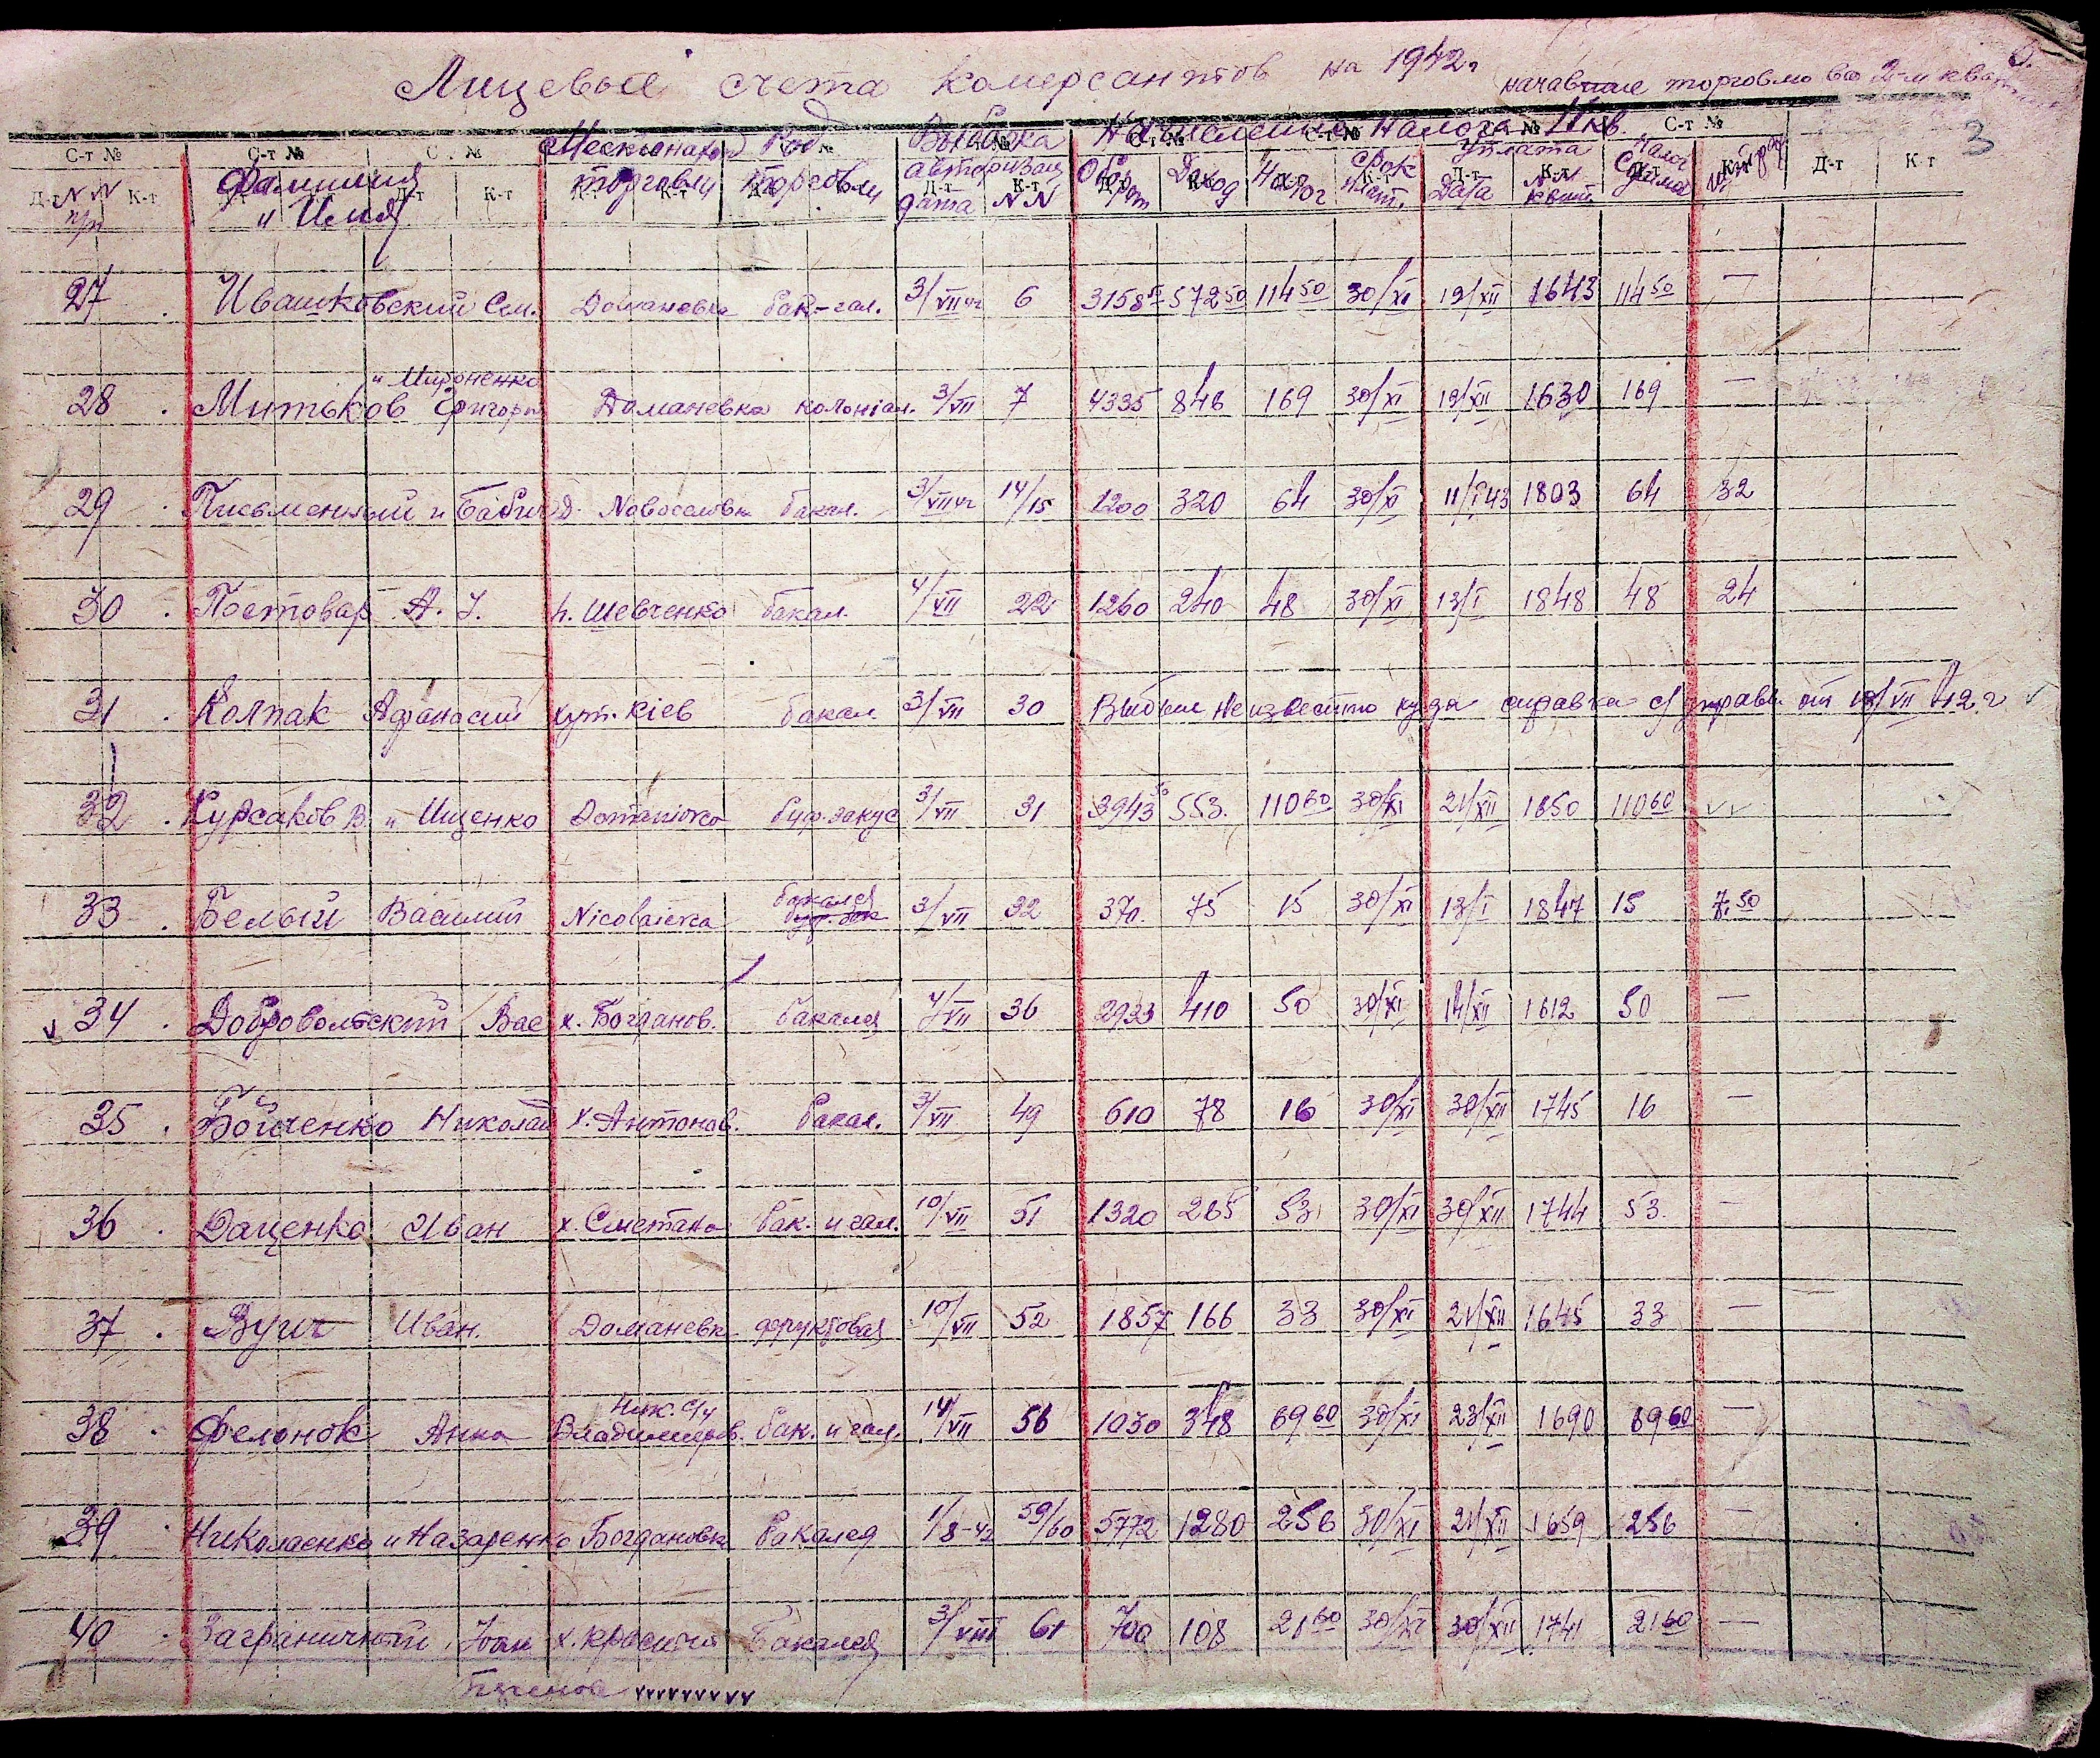 Лицевые счета комерсантов на 1942г начавшие торговлю во 2-м
3
С-т № С-т № С-т № С-т № С-т №
Местонахожд Род Выборка Начисление Налога II кв.
Фамилия и Имя торговли Торговли авторизац Оборот Доход Налог Срок плат. Уплата Налог
NN п/п дата NN Дата NN квит Сумма штраф
Д-т К-т Д-т К-т Д-т К-т
27 Ивашковский Сем. Домановка бак-гал. 3/VII 42 6 3158 572 50 114 50 30/XI 19/XII 1643 114 50 —
и Мироненко
28 Митьков Григори Доманевка колоніал. 3/VII 7 4335 846 169 30/XI 19/XII 1630 169 —
29 Письменный и Бабич Д. Novoселовка бакал. 3/VII 42 14/15 1200 320 64 30/XI 11/I 43 1803 64 32
30 Постовар А. І. п. Шевченко бакал. 4/VII 22 1260 240 48 30/XI 13/I 1848 48 24
31 Колпак Афанасий хут. Кіев бакал 3/VII 30 Выбыл неизвестно куда справка с/управы от 19/VII 42 г
32 Курсаков В. и Ищенко Domaniovca буф. закус 3/VII 31 3943 50 553. 110 60 30/XI 21/XII 1650 110 60
бакалея
33 Белый Василий Nicolaievca буф. зак 3/VII 32 370 75 15 30/XI 13/I 1847 15 7.50
34 Добровольский Вас х. Богданов. бакалея 4/VII 36 2933 410 50 30/XI 14/XII 1612 50 —
35 Бойченко Николай х. Антонов. бакал. 3/VII 49 610 78 16 30/XI 30/XII 1745 16 —
36 Даценко Иван х. Сметана бак. и гал. 10/VII 51 1320 265 53 30/XI 30/XII 1744 53 —
37 Зуич Иван. Доманевк фруктовая 10/VII 52 1857 166 33 30/XI 21/XII 1645 33 —
Ник. с/у
38 Фелонюк Анна Владимиров. бак. и гал. 14/VII 56 1030 348 69 60 30/XI 23/XII 1690 69 60 —
39 Николаенко и Назаренко Богдановка бакалея 1/8-42 59/60 5772 1280 256 30/XI 21/XII 1659 256 —
40 Заграничный Іван х. Красный Бакалея 3/VIII 61 700 108 21 60 30/XI 30/XII 1741 21 60 —